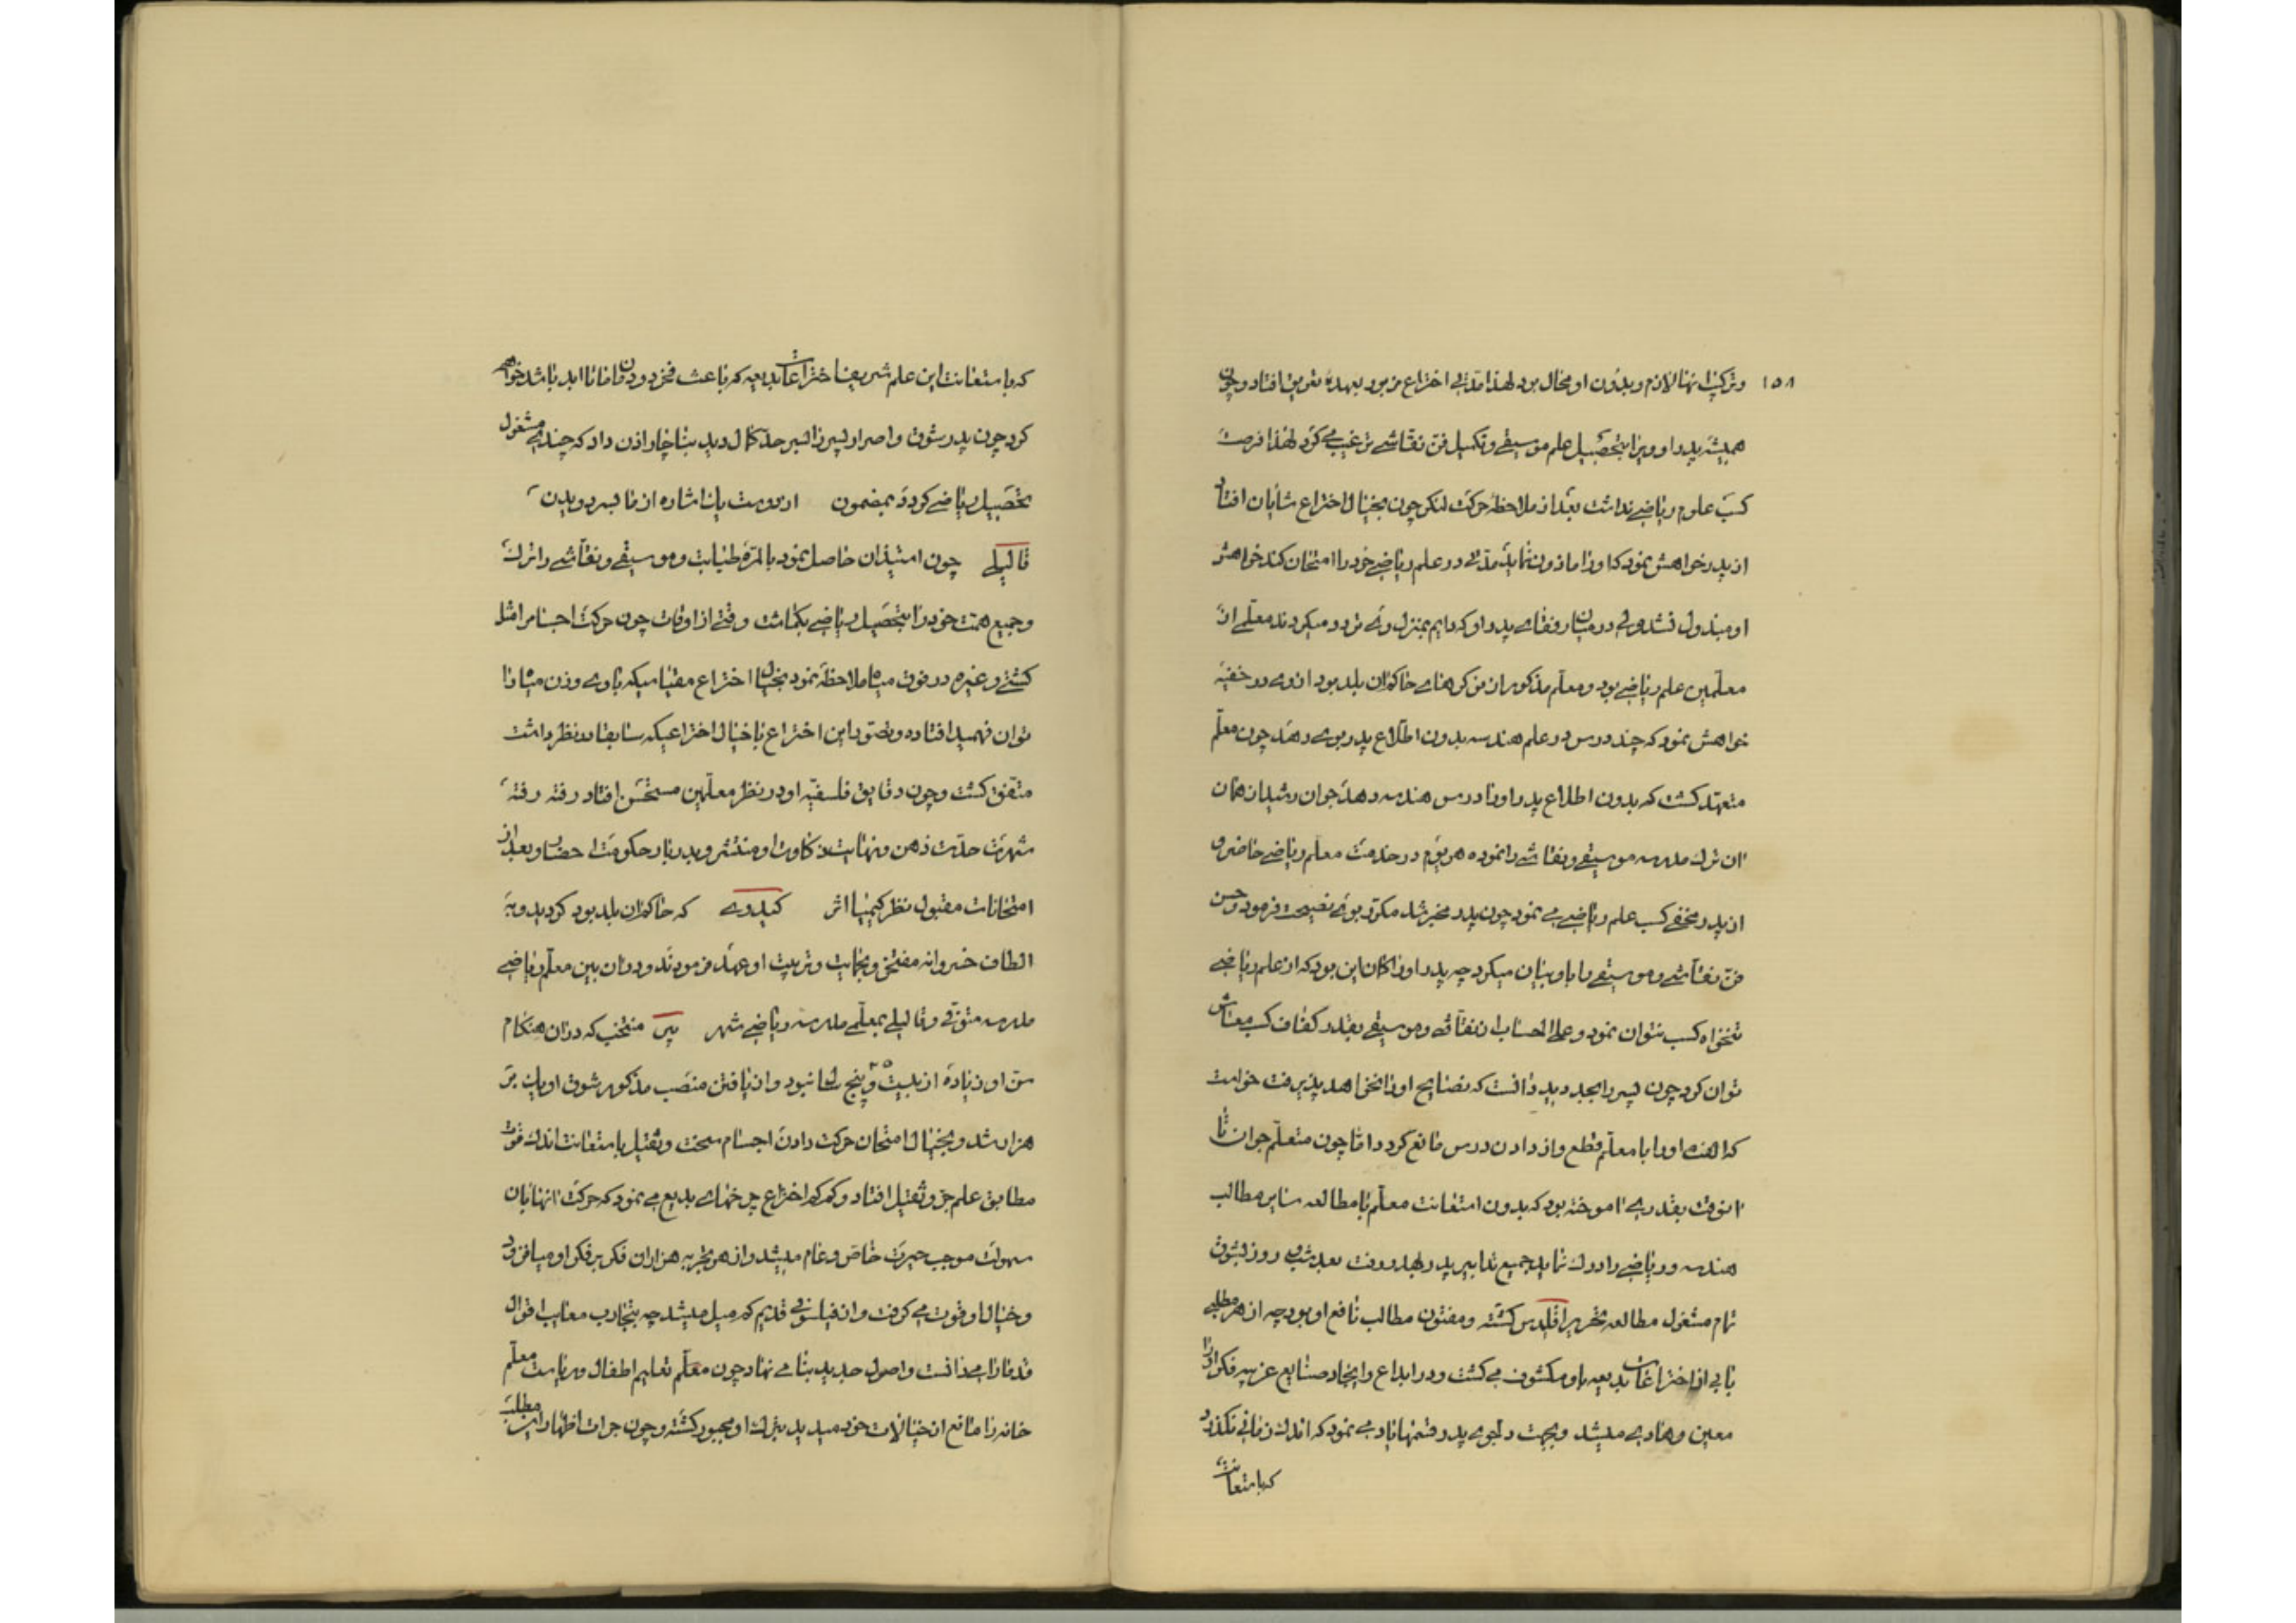 ۱۵۸
و ترکیب آنها لازم و بدون او محال بود لهذا مدتی اختراع مزبور بعهدهٔ تعویق افتاد و چون
همیشه پدر او ویرا بتحصیل علم موسیقی و تکمیل فن نقاشی ترغیب می کرد لهذا فرصت
کسب علوم ریاضی نداشت بعد از ملاحظهٔ حرکت لنکر چون بخیال اختراع شایان افتاد
از پدر خواهش نمود که او را ماذون نماید مدتی در علم ریاضی خود را امتحان کند خواهش
او مبذول نشد ولی در میان رفقای پدر او که دایم بمنزل وی تردد میکردند معلمی از
معلمین علم ریاضی بود و معلم مذکور از نوکرهای حاکم ان بلد بود از وی در خفیه
خواهش نمود که چند درس در علم هندسه بدون اطلاع پدر بوی دهد چون معلم
متعهد کشت که بدون اطلاع پدر او را درس هندسه دهد جوان رشید از همان
ان ترک مدرسه موسیقی و نقاشی را نموده هر یوم در خدمت معلم ریاضی حاضر و
از پدر مخفی کسب علم ریاضی می نمود چون پدر مخبر شد مکرر بوی نصیحت فرمود و حسن
فن نقاشی و موسیقی را باو بیان میکرد چه پدر او را کمان این بود که از علم ریاضی
تنخواه کسب نتوان نمود و علی الحساب از نقاشی و موسیقی بقدر کفاف کسب معاش
توان کرد چون پسر را بجد دید دانست که نصایح او را نخواهد پذیرفت خواست
که الفت او را با معلم قطع و از دادن درس مانع کردد اما چون متعلم جوان تا
انوقت بقدری اموخته بود که بدون استعانت معلم با مطالعه سایر مطالب
هندسه و ریاضی را درک نماید جمیع تدابیر پدر بهدر رفت بعد شب و روز بشوق
تمام مشغول مطالعه تحریر اقلیدس کشته و مفتون مطالب نافع او بود چه از هر مطلبی
بابی از اختراعات بدیعه باو مکشوف می کشت و در ابداع و ایجاد صنایع غریبه فکر او را
معین و هادی میشد و بجهت دلجوی پدر قسمها یاد می نمود که اندک زمانی نکذرد
که باستعانت
که باستعانت این علم شریف اختراعات بدیعه که باعث فخر دودمان ما تا ابد باشد خواهم
کرد چون پدر شوق و اصرار پسر را بسر حد کمال دید بناچار اذن داد که چندی مشغول
تحصیل ریاضی کردد بمضمون از دوست یک اشاره از ما بسر دویدن
قالیلی چون استیذان حاصل نمود بالمره طبابت و موسیقی و نقاشی را ترک
و جمیع همت خود را بتحصیل ریاضی بکماشت وقتی از اوقات چون حرکت اجسام را مثل
کشتی و غیره در فوق میاه ملاحظه نمود بخیال اختراع مقیاسیکه باوی وزن میاه را
توان فهمید افتاده و تصور این اختراع با خیال اختراعیکه سابقا در نظر داشت
متفق کشت و چون دقایق فلسفیه او در نظر معلمین مستحسن افتاد رفته رفته
شهرت حدت ذهن و نهایت ذکاوت او منتشر و بدربار حکومت احضار و بعد از
امتحانات مقبول نظر کیمیا اثر کیدوی که حاکم ان بلد بود کردید و به
الطاف خسروانه مفتخر و بحمایت و تربیت او عهد فرمودند و در ان بین معلم ریاضی
مدرسه متوفی و قالیلی بمعلمی مدرسه ریاضی شهر پیز منتخب که در ان هنکام
سن او زیاده از بیست و پنج سال نبود و از یافتن منصب مذکور شوق او یک بر
هزار شد و بخیال امتحان حرکت دادن اجسام سخت و ثقیل باستعانت اندک قوت
مطابق علم جر و ثقیل افتاد و کم کم اختراع چرخهای بدیع می نمود که حرکت انها بان
سهولت موجب حیرت خاص و عام میشد و از هر تجربه هزاران فکر بر فکر او میافزود
و خیال او قوت می کرفت و از فیلسوفی قدیم کم میل میشد چه بتجارب معایب اقوال
قدما را میدانست و اصول جدید بنا می نهاد چون معلم تعلیم اطفال و ریاست معلم
خانه را مانع از خیالات خود میدید بترک او مجبور کشته و چون جرات اظهار این مطلب